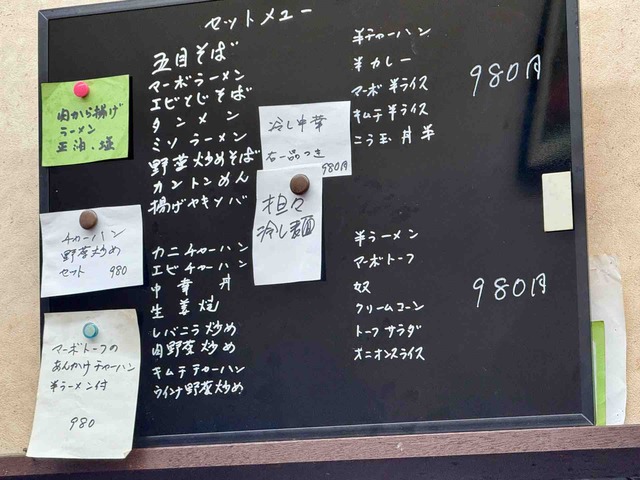 セットメニュー
五目そば
マーボラーメン
エビとじそば
タンメン
ミソラーメン
野菜炒めそば
カントンめん
揚げヤキソバ
半チャーハン
半カレー
マーボ半ライス
キムチ半ライス
こう玉丼半
980円
カニチャーハン
エビチャーハン
中華丼
生姜焼
レバニラ炒め
肉野菜炒め
キムチチャーハン
ウインナ野菜炒め
半ラーメン
マーボトーフ
奴
クリームコーン
トーフサラダ
オニオンスライス
980円
肉から揚げ
ラーメン
正油、塩
冷し中華
右一品つき
980円
担々
冷し麺
チャーハン
野菜炒め
セット 980
マーボトーフの
あんかけチャーハン
半ラーメン付
980